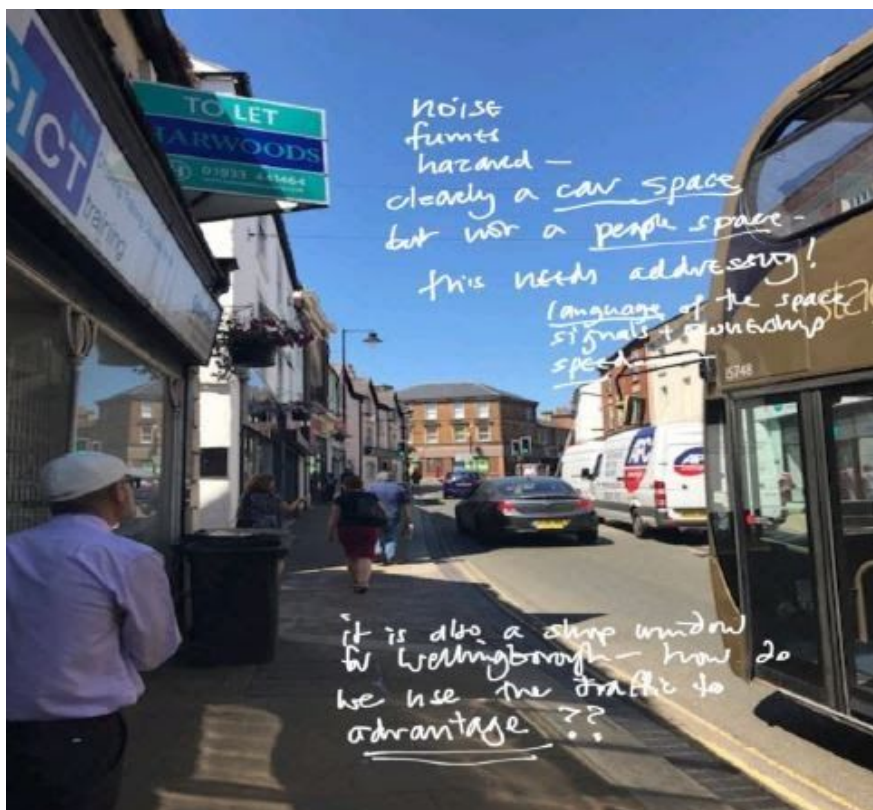 CICT
training
TO LET
HARWOODS
01933 441464
noise
fumes
hazard —
clearly a car space
but not a people space -
this needs addressing!
language of the space
signals + ownership
speed
sta
15748
AFC
AFC
it is also a shop window
for Wellingborough - how do
we use the traffic to
advantage ??